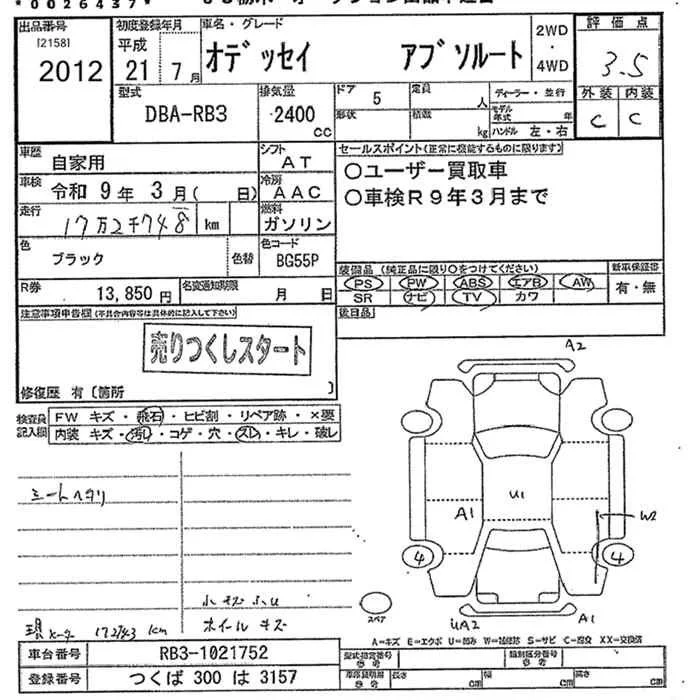 *0026437*
出品番号
[2158]
2012
初度登録年月
平成
21 7月
車名・グレード
オデッセイ アブソルート
2WD
・
4WD
評価点
3.5
外装 内装
C C
型式
DBA-RB3
排気量
2400
cc
ドア
5
形状
定員
人
積載
kg
ディーラー・並行
モデル年式 年
ハンドル 左・右
車歴
自家用
シフト
AT
車検
令和 9年 3月( 日)
冷房
AAC
走行
17万2千748 km
燃料
ガソリン
色
ブラック
色替
色コード
BG55P
R券
13,850円
名変通知期限
月 日
セールスポイント(正常に機能するものに限ります)
○ユーザー買取車
○車検R9年3月まで
装備品(純正品に限り○をつけてください)
PS PW ABS エアB AW
SR ナビ TV カワ
新車保証書
有・無
後日品
注意事項申告欄(不具合内容等は具体的に記入して下さい)
売りつくしスタート
修復歴 有〔箇所 〕
検査員
記入欄
FW キズ・飛石・ヒビ割・リペア跡・×要
内装 キズ・汚れ・コゲ・穴・スレ・キレ・破レ
シートヘタリ
小キズ
ホイールキズ
km
A2
U1
A1
W2
4
4
スペア
UA2
A1
A=キズ E=エクボ U=凹み W=補修跡 S=サビ C=腐食 XX=交換済
車台番号
RB3-1021752
登録番号
つくば 300 は 3157
型式指定番号
類別区分番号
長さ cm
幅 cm
高さ cm